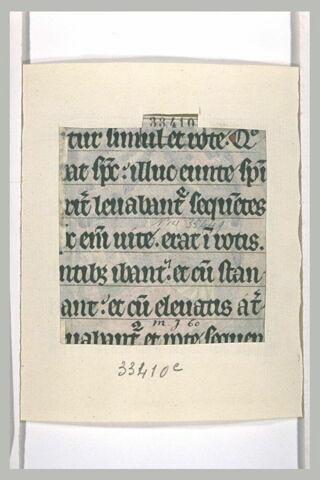 33410
tur simul et rote. Qͦ
at spc̄: illuc eunte spū
rāt leuabant᷑ sequētes
r em̄ uite. erat ī rotis.
ntibꝫ ibant᷑. et cū stan
ant: et cū eleuatis a tr̄
m J 60
uabant᷑ et rote sequen
33410e